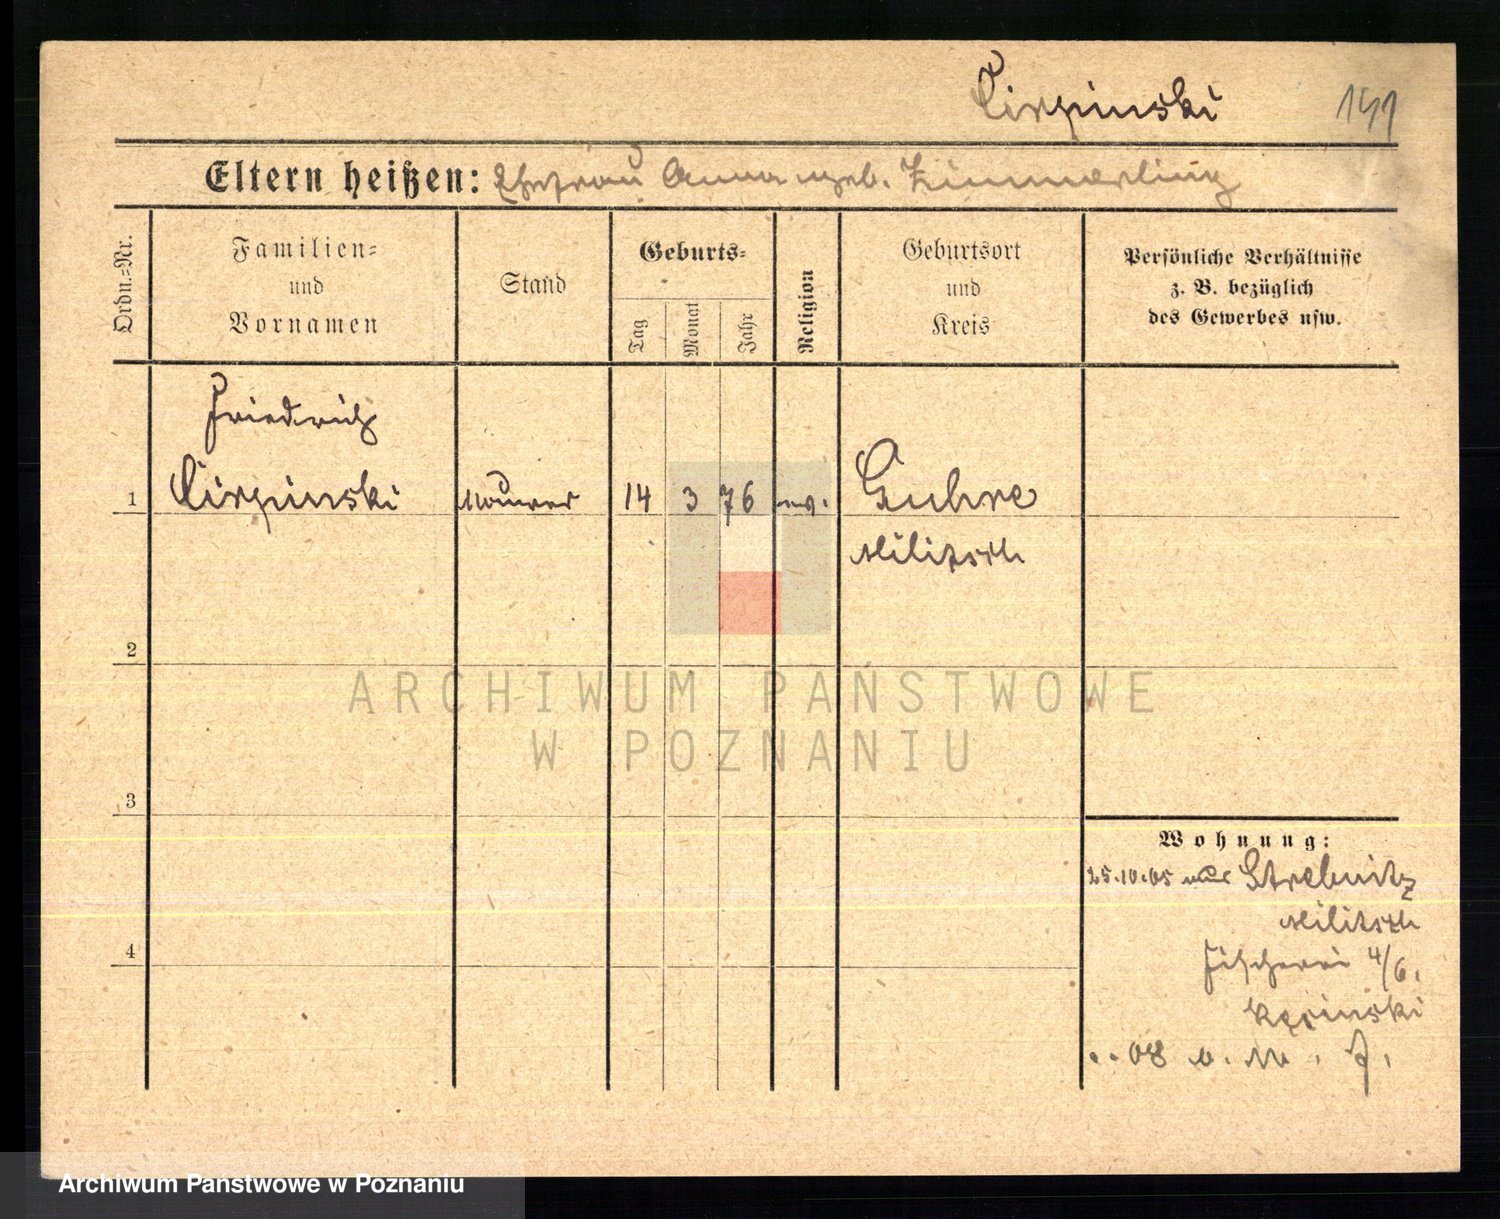 Cirpinski 141
Eltern heißen: Ehefrau Anna geb. Zimmerling
Ordn.-Nr.
Familien-
und
Vornamen
Stand
Geburts-
Tag
Monat
Jahr
Religion
Geburtsort
und
Kreis
Persönliche Verhältnisse
z. B. bezüglich
des Gewerbes usw.
Friedrich
1 Cirpinski Maurer 14 3 76 ev. Guhre
Militsch
2
ARCHIWUM PAŃSTWOWE
W POZNANIU
3
Wohnung:
25.10.05 aus Strebnitz
Militsch
Fischerei 4/6.
08
4
Archiwum Państwowe w Poznaniu